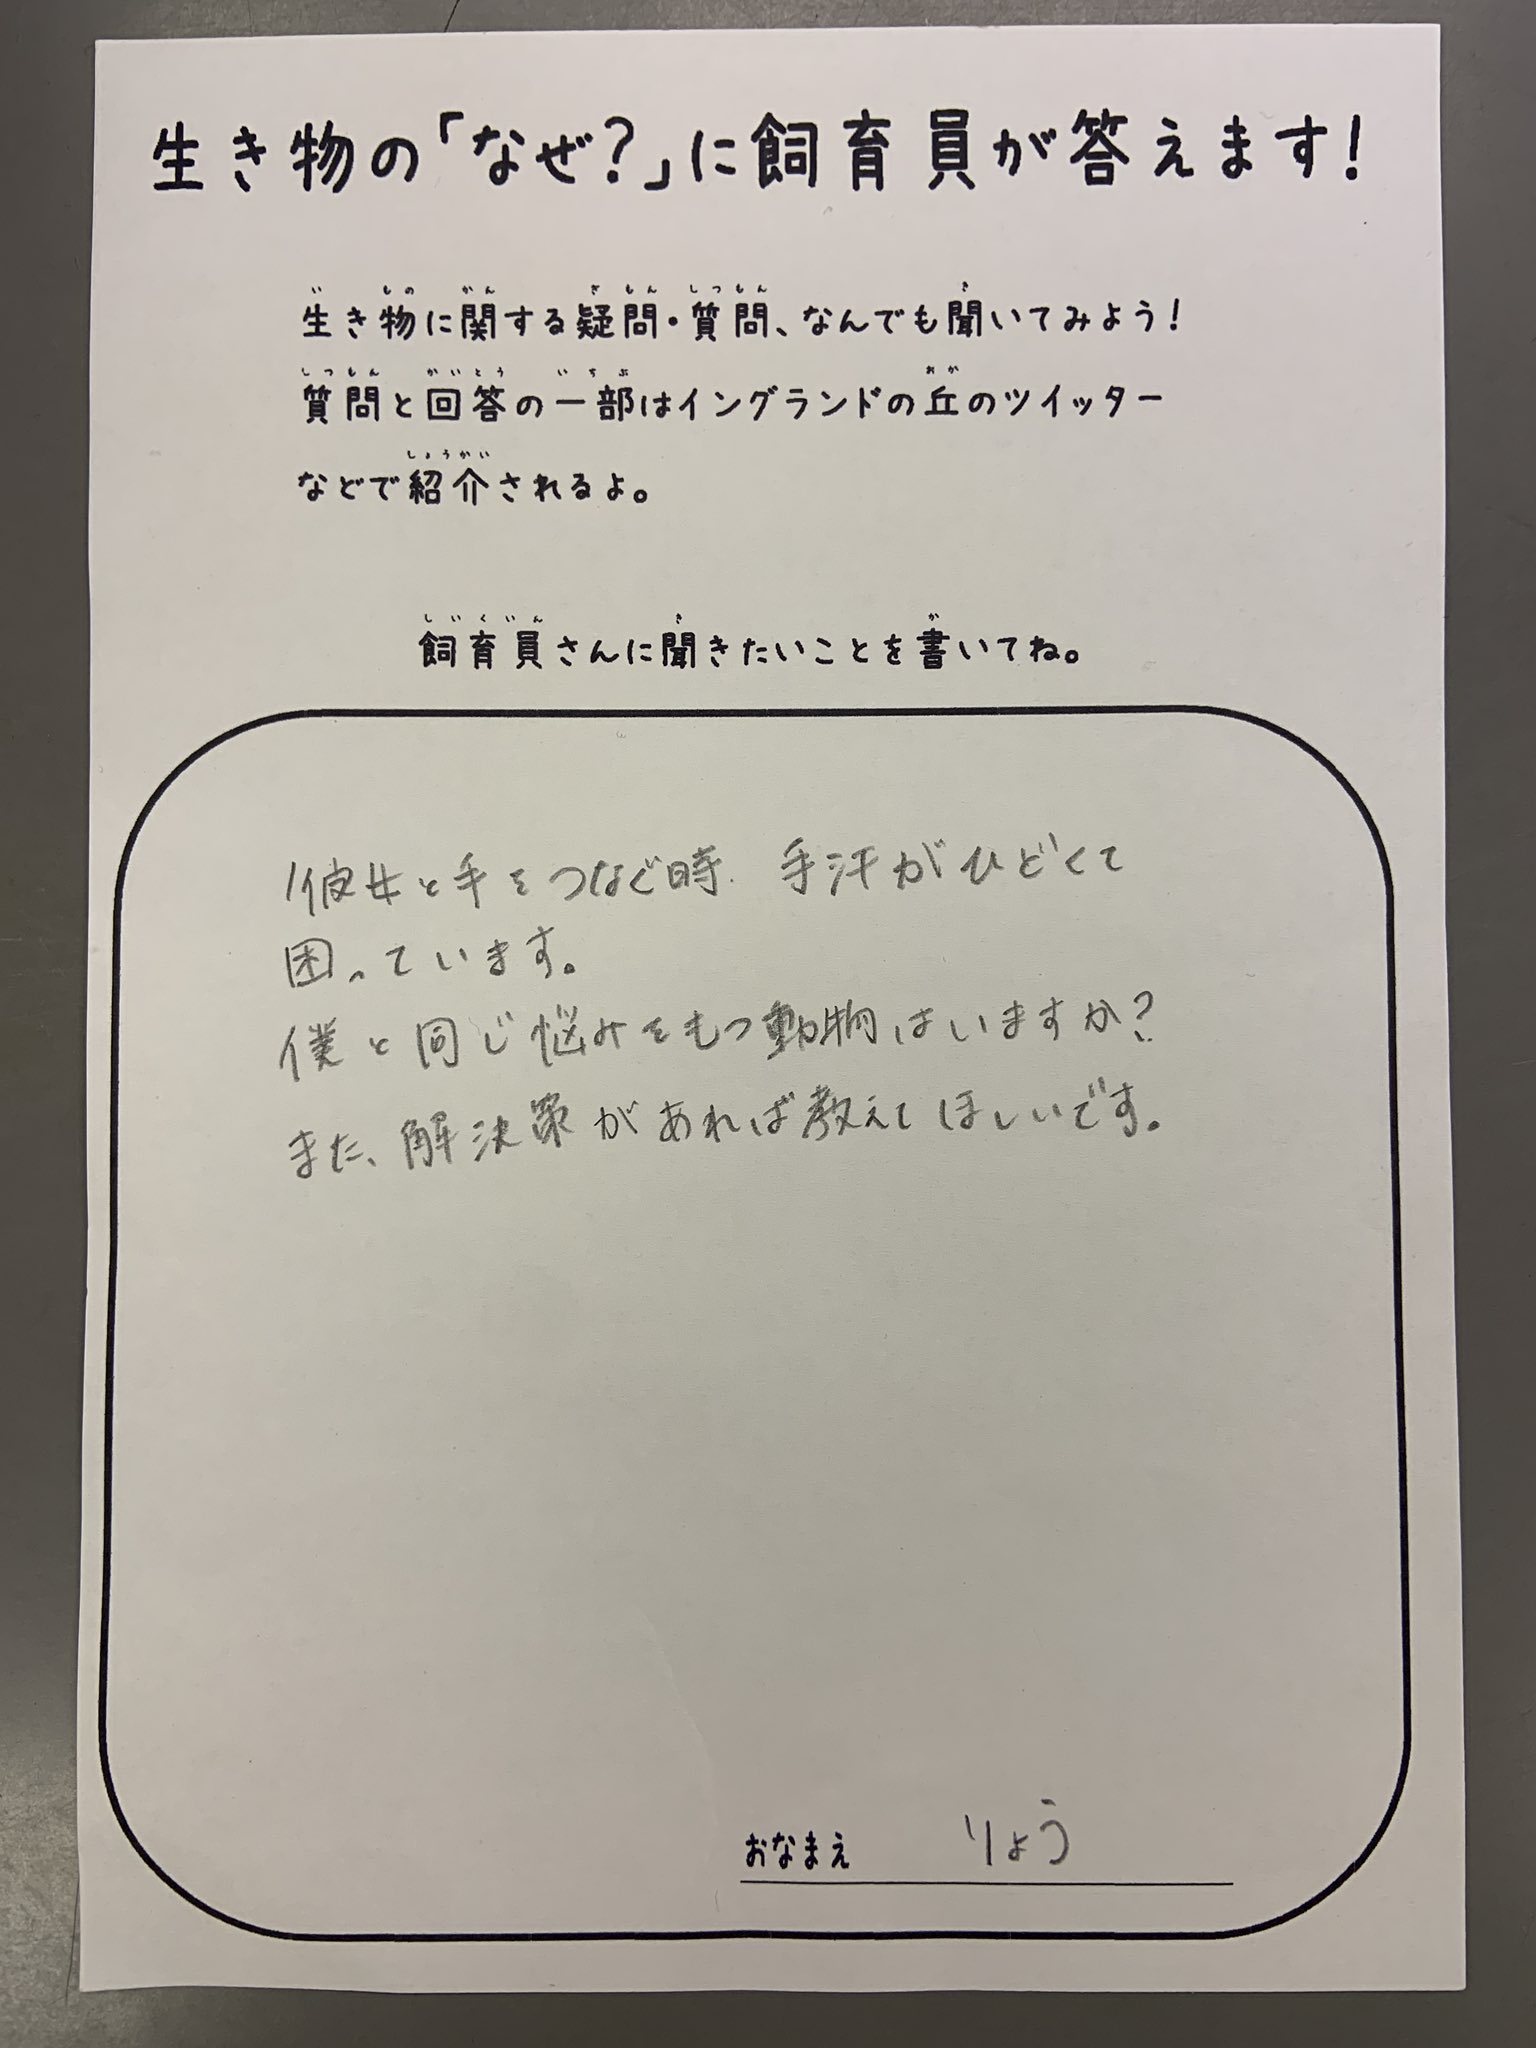 生き物の「なぜ?」に飼育員が答えます!
生き物に関する疑問・質問、なんでも聞いてみよう!
質問と回答の一部はイングランドの丘のツイッター
などで紹介されるよ。
飼育員さんに聞きたいことを書いてね。
彼女と手をつなぐ時、手汗がひどくて
困っています。
僕と同じ悩みをもつ動物はいますか?
また、解決策があれば教えてほしいです。
おなまえ りょう